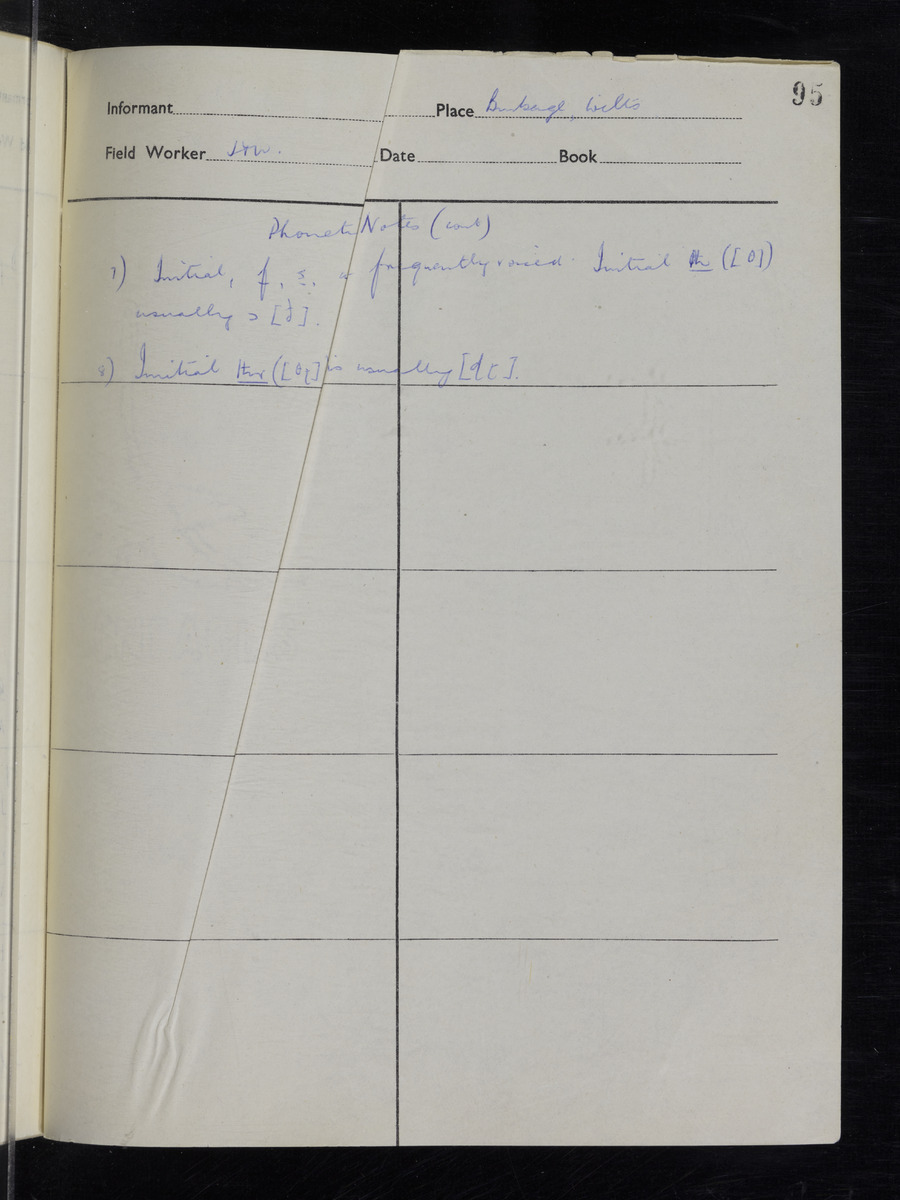 95
Informant Place Burbage, Wilts
Field Worker Date Book
Phonetic Notes (cont)
7) Initial, f, s, frequently voiced. Initial th ([θ])
usually > [ð].
8) Initial thr ([θɼ] is usually [dɽ].